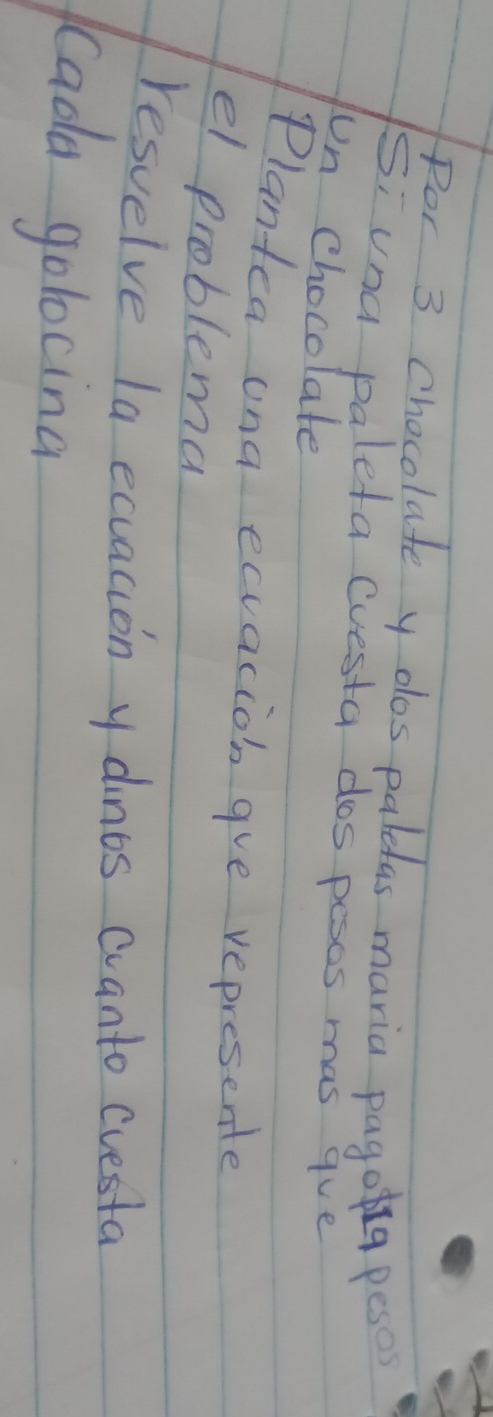 Por 3 chocolate y dos paletas maria pago 19 pesos
Si una paleta cuesta dos pesos mas que
un chocolate
Plantea una ecuación que represente
el problema
resuelve la ecuación y dinos cuanto cuesta
Cada golocina